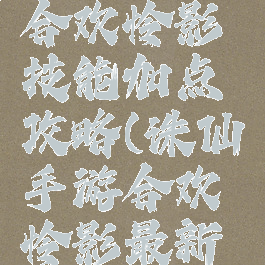 合欢怜影
技能加点
攻略(诛仙
手游合欢
怜影最新